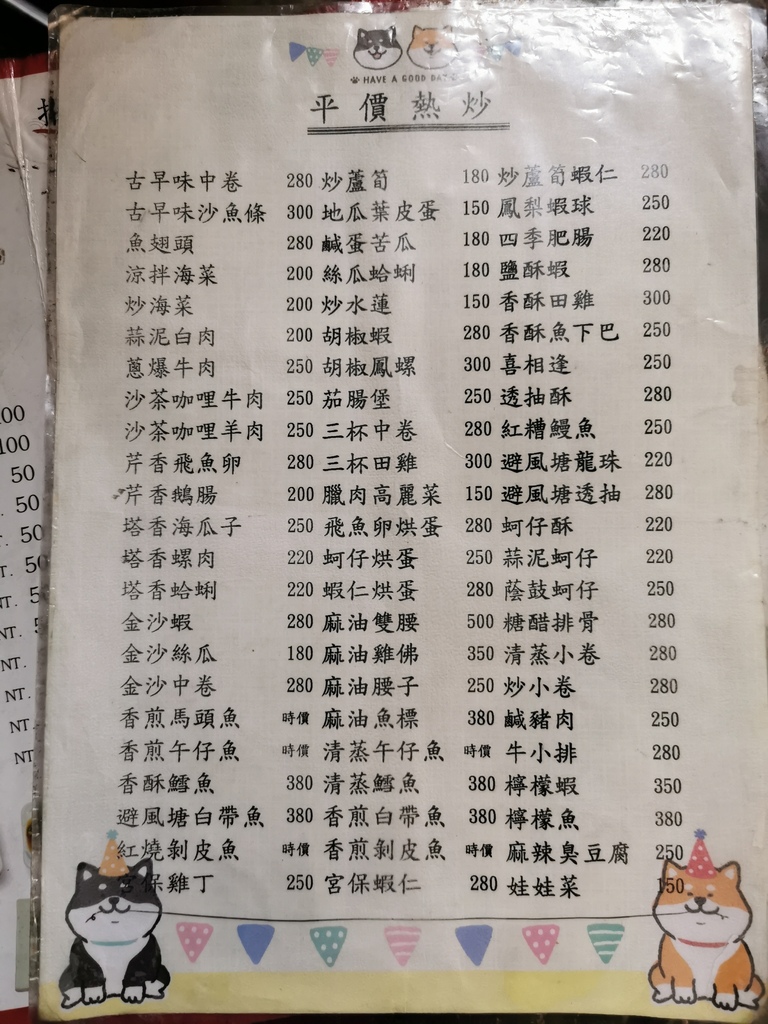 HAVE A GOOD DAY
平價熱炒
古早味中卷 280 炒蘆筍 180 炒蘆筍蝦仁 280
古早味沙魚條 300 地瓜葉皮蛋 150 鳳梨蝦球 250
魚翅頭 280 鹹蛋苦瓜 180 四季肥腸 220
涼拌海菜 200 絲瓜蛤蜊 180 鹽酥蝦 280
炒海菜 200 炒水蓮 150 香酥田雞 300
蒜泥白肉 200 胡椒蝦 280 香酥魚下巴 250
蔥爆牛肉 250 胡椒鳳螺 300 喜相逢 250
沙茶咖哩牛肉 250 茄腸堡 250 透抽酥 280
沙茶咖哩羊肉 250 三杯中卷 280 紅糟鰻魚 250
芹香飛魚卵 280 三杯田雞 300 避風塘龍珠 220
芹香鵝腸 200 臘肉高麗菜 150 避風塘透抽 280
塔香海瓜子 250 飛魚卵烘蛋 280 蚵仔酥 220
塔香螺肉 220 蚵仔烘蛋 250 蒜泥蚵仔 220
塔香蛤蜊 220 蝦仁烘蛋 280 蔭鼓蚵仔 250
金沙蝦 280 麻油雙腰 500 糖醋排骨 280
金沙絲瓜 180 麻油雞佛 350 清蒸小卷 280
金沙中卷 280 麻油腰子 250 炒小卷 280
香煎馬頭魚 時價 麻油魚標 380 鹹豬肉 250
香煎午仔魚 時價 清蒸午仔魚 時價 牛小排 280
香酥鱈魚 380 清蒸鱈魚 380 檸檬蝦 350
避風塘白帶魚 380 香煎白帶魚 380 檸檬魚 380
紅燒剝皮魚 時價 香煎剝皮魚 時價 麻辣臭豆腐 250
宮保雞丁 250 宮保蝦仁 280 娃娃菜 150
100
100
50
50
50
T. 50
NT. 5
NT.
NT.
NT.
NT